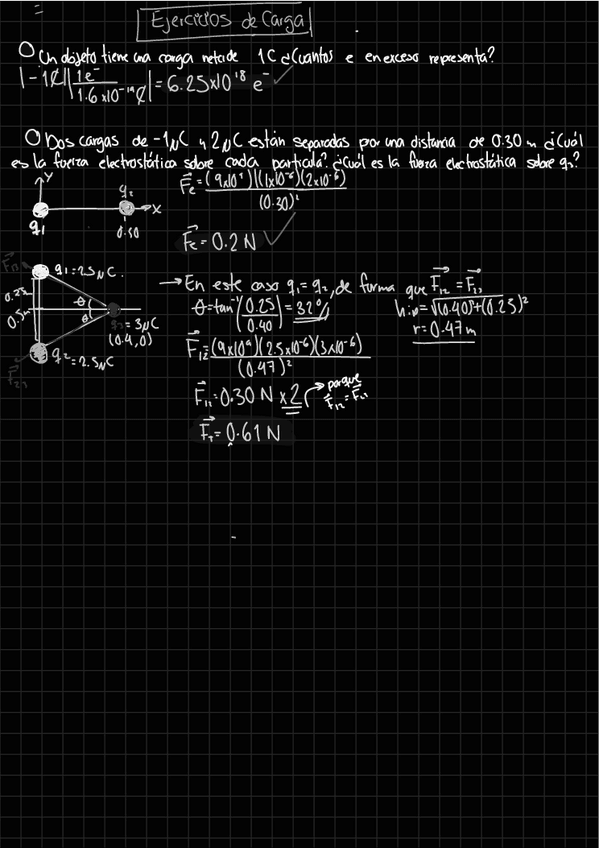 Ejercicios de Carga
Un objeto tiene una carga neta de 1C ¿Cuantos e en exceso representa?
|-1C| |1e⁻ / 1.6x10⁻¹⁹C| = 6.25x10¹⁸ e⁻
Dos cargas de -1μC y 2μC están separadas por una distancia de 0.30 m ¿Cuál
es la fuerza electrostática sobre cada particula? ¿Cuál es la fuerza electrostática sobre q₂?
y
q₂
x
q₁
0.30
Fₑ = (9x10⁹)(1x10⁻⁶)(2x10⁻⁶) / (0.30)²
Fₑ = 0.2 N
q₁ = 2.5μC.
0.25
0.5m
θ
θ
= 3μC
(0.4,0)
q₂ = 2.5μC
F₂₃
→ En este caso q₁ = q₂, de forma que F₁₂ = F₂₃
θ = tan⁻¹(0.25 / 0.40) = 32°
hip = √(0.40)²+(0.25)²
r = 0.47m
F₁₂ = (9x10⁹)(2.5x10⁻⁶)(3x10⁻⁶) / (0.47)²
F₁₂ = 0.30 N x 2 → porque
F₁₂ = F₂₃
F_T = 0.61 N